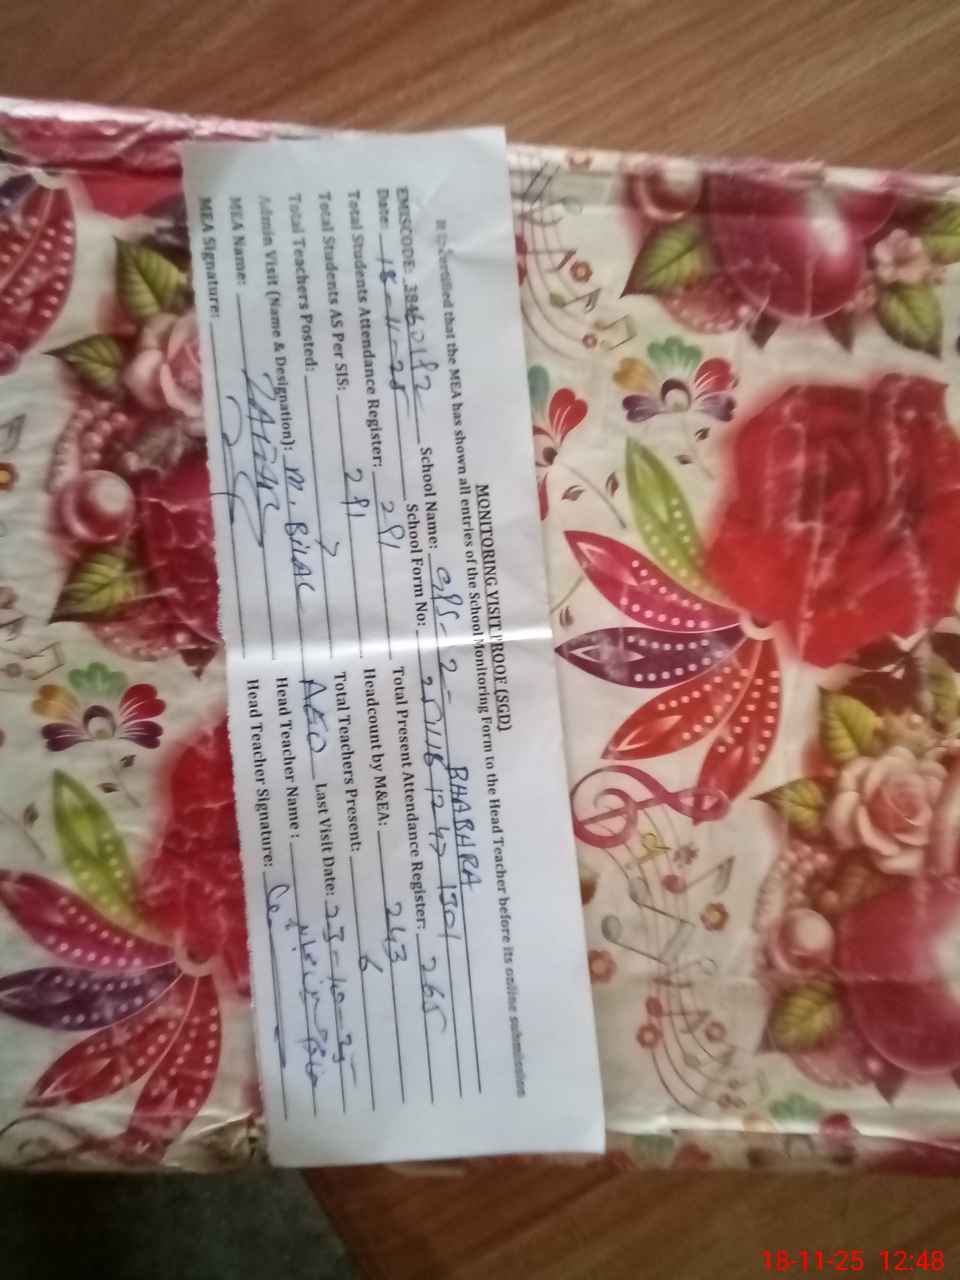 MONITORING VISIT PROOF (SGD)
It is certified that the MEA has shown all entries of the School Monitoring Form to the Head Teacher before its online submission
EMISCODE: School Name: GPS-2- BHABHRA
Date: 18-11-25 School Form No:
Total Students Attendance Register: 291 Total Present Attendance Register: 265
Total Students AS Per SIS: 291 Headcount by M&EA: 263
Total Teachers Posted: 7 Total Teachers Present: 6
Admin Visit (Name & Designation): M. BILAL AEO Last Visit Date: 23-10-25
MEA Name: Head Teacher Name:
MEA Signature: Head Teacher Signature:
18-11-25 12:48